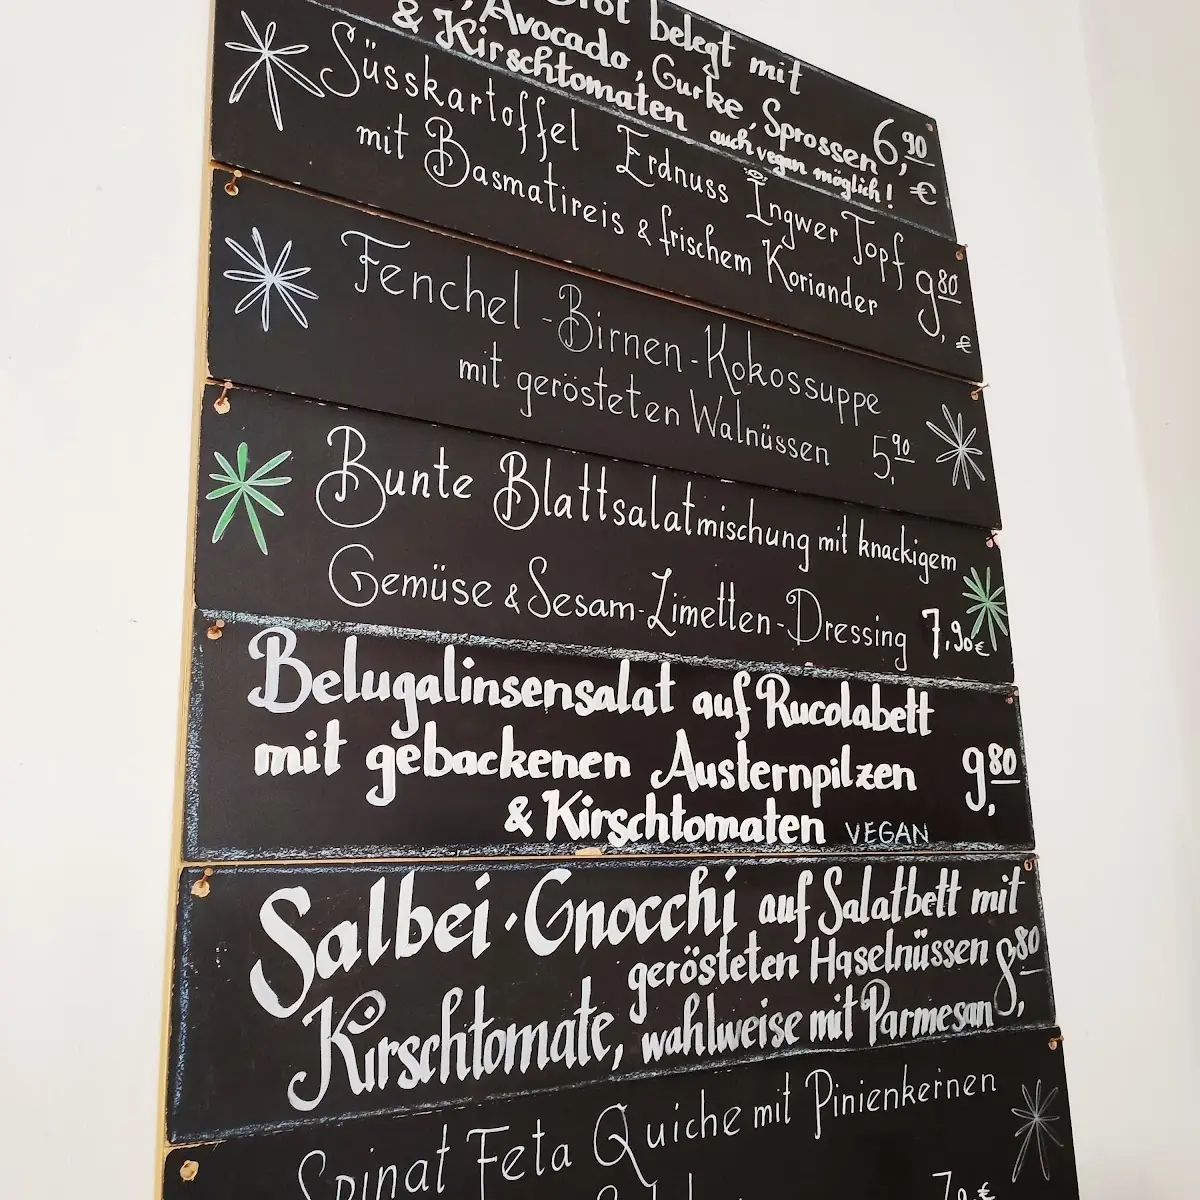 Brot belegt mit
, Avocado, Gurke, Sprossen
& Kirschtomaten auch vegan möglich! 6,90 €
Süsskartoffel Erdnuss Ingwer Topf
mit Basmatireis & frischem Koriander 9,80 €
Fenchel-Birnen-Kokossuppe
mit gerösteten Walnüssen 5,90
Bunte Blattsalatmischung mit knackigem
Gemüse & Sesam-Limetten-Dressing 7,90€
Belugalinsensalat auf Rucolabett
mit gebackenen Austernpilzen 9,80
& Kirschtomaten VEGAN
Salbei-Gnocchi auf Salatbett mit
gerösteten Haselnüssen 8,80
Kirschtomate, wahlweise mit Parmesan
Spinat Feta Quiche mit Pinienkernen